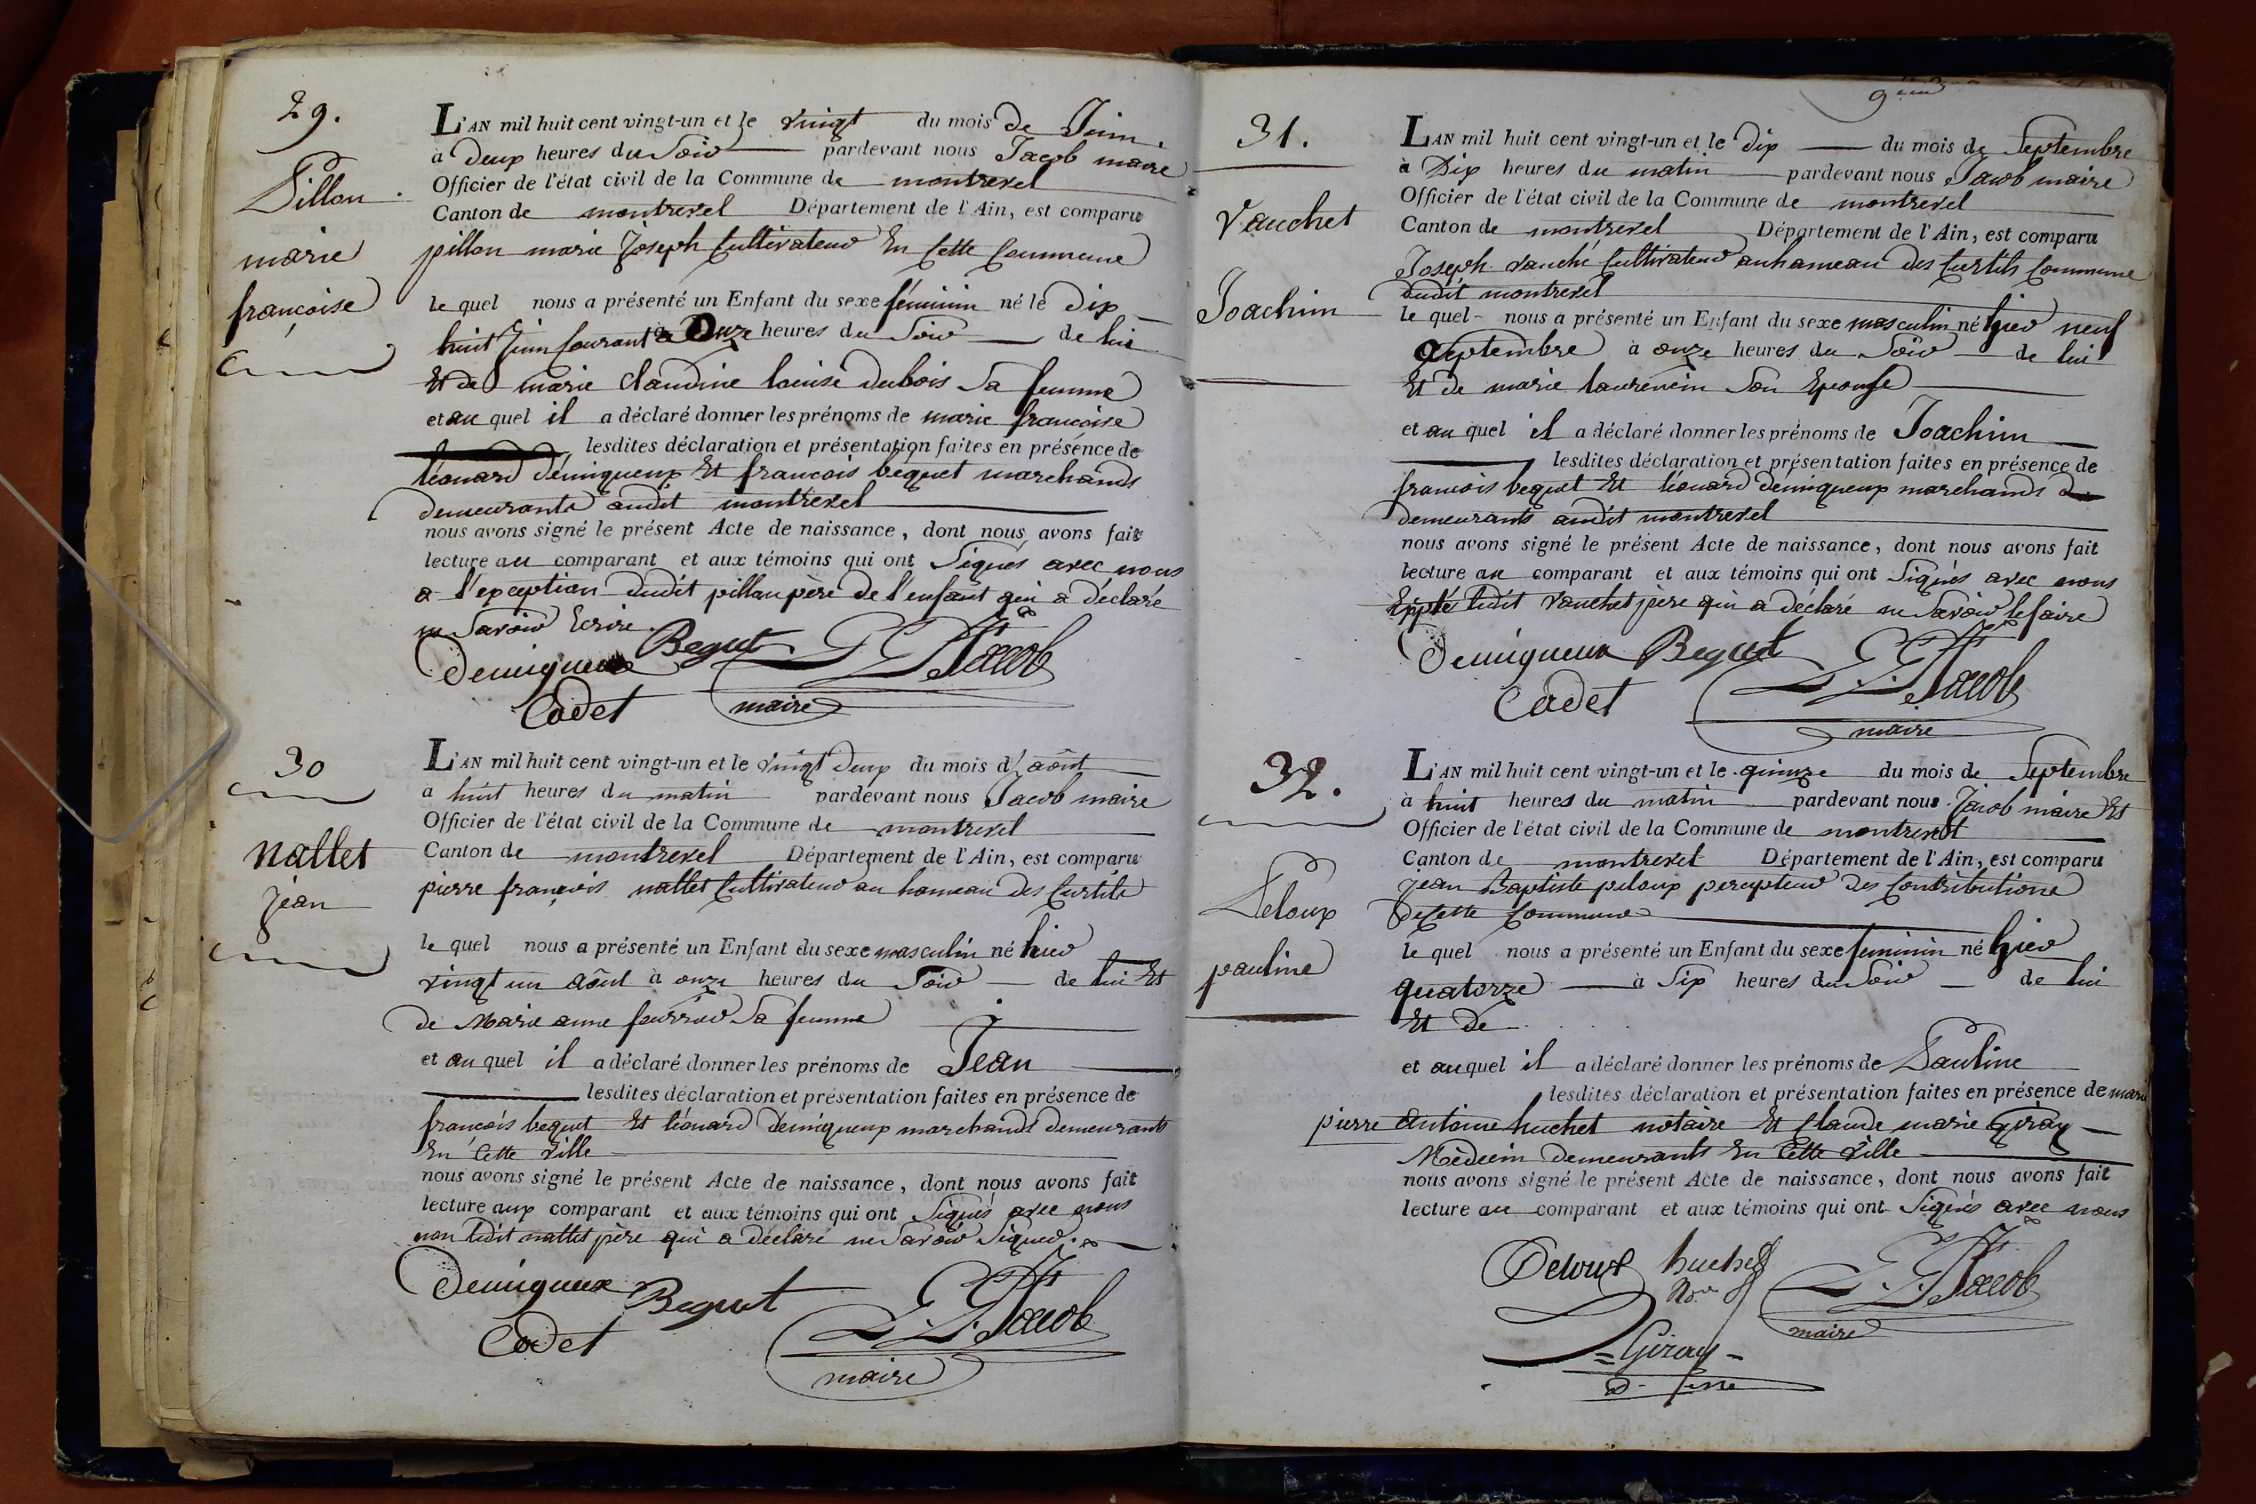 29.
Pillon
marie
françoise
L'AN mil huit cent vingt-un et le vingt du mois de Juin
à Deux heures du Soir pardevant nous Jacob maire
Officier de l'état civil de la Commune de montrevel
Canton de montrevel Département de l'Ain, est comparu
pillon marie Joseph Cultivateur En Cette Commune
le quel nous a présenté un Enfant du sexe féminin né le dix
huit Juin Courant à Onze heures du Soir de lui
Et de marie claudine louise dubois Sa femme
et au quel il a déclaré donner les prénoms de marie francoise
lesdites déclaration et présentation faites en présence de
léonard démiqueux Et francois béquet marchands
demeurants audit montrevel
nous avons signé le présent Acte de naissance, dont nous avons fait
lecture au comparant et aux témoins qui ont Signés avec nous
a l'exception dudit pillon père de l'enfant qui a déclaré
ne Savoir Ecrire.
Demiqueux Bequet J. J. Jacob
Cadet maire
30
nallet
jean
L'AN mil huit cent vingt-un et le vingt Deux du mois d'août
à huit heures du matin pardevant nous Jacob maire
Officier de l'état civil de la Commune de montrevel
Canton de montrevel Département de l'Ain, est comparu
pierre françois nallet Cultivateur au hameau des Curtils
le quel nous a présenté un Enfant du sexe masculin né hier
vingt un août à onze heures du Soir de lui Et
de Marie anne Sa femme
et au quel il a déclaré donner les prénoms de Jean
lesdites déclaration et présentation faites en présence de
françois bequet Et léonard démiqueux marchands demeurants
En Cette Ville
nous avons signé le présent Acte de naissance, dont nous avons fait
lecture aux comparant et aux témoins qui ont Signés avec nous
non ledit nallet père qui a déclaré ne Savoir Signer.
Demiqueux Bequet J. J. Jacob
Cadet maire
31.
Vauchet
Joachim
L'AN mil huit cent vingt-un et le dix du mois de Septembre
à Dix heures du matin pardevant nous Jacob maire
Officier de l'état civil de la Commune de montrevel
Canton de montrevel Département de l'Ain, est comparu
Joseph vauché Cultivateur au hameau des Curtils Commune
dudit montrevel
le quel nous a présenté un Enfant du sexe masculin né hier neuf
Septembre à onze heures du Soir de lui
Et de marie laurencin Son Epouse
et au quel il a déclaré donner les prénoms de Joachim
lesdites déclaration et présentation faites en présence de
francois bequet Et léonard démiqueux marchands
demeurants audit montrevel
nous avons signé le présent Acte de naissance, dont nous avons fait
lecture au comparant et aux témoins qui ont Signés avec nous
Expté ledit Vauchet pere qui a déclaré ne Savoir le faire
Demiqueux Bequet J. J. Jacob
Cadet maire
32.
Peloux
pauline
L'AN mil huit cent vingt-un et le quinze du mois de Septembre
à huit heures du matin pardevant nous Jacob maire Et
Officier de l'état civil de la Commune de montrevel
Canton de montrevel Département de l'Ain, est comparu
Jean Baptiste peloux percepteur des Contributions
de Cette Commune
le quel nous a présenté un Enfant du sexe feminin né hier
quatorze à Six heures du Soir de lui
Et de
et au quel il a déclaré donner les prénoms de Pauline
lesdites déclaration et présentation faites en présence de marie
pierre Antoine huchet notaire Et Claude marie Giray
Médecin demeurants En Cette Ville
nous avons signé le présent Acte de naissance, dont nous avons fait
lecture au comparant et aux témoins qui ont Signés avec nous
Peloux huchet J. J. Jacob
maire
Giray